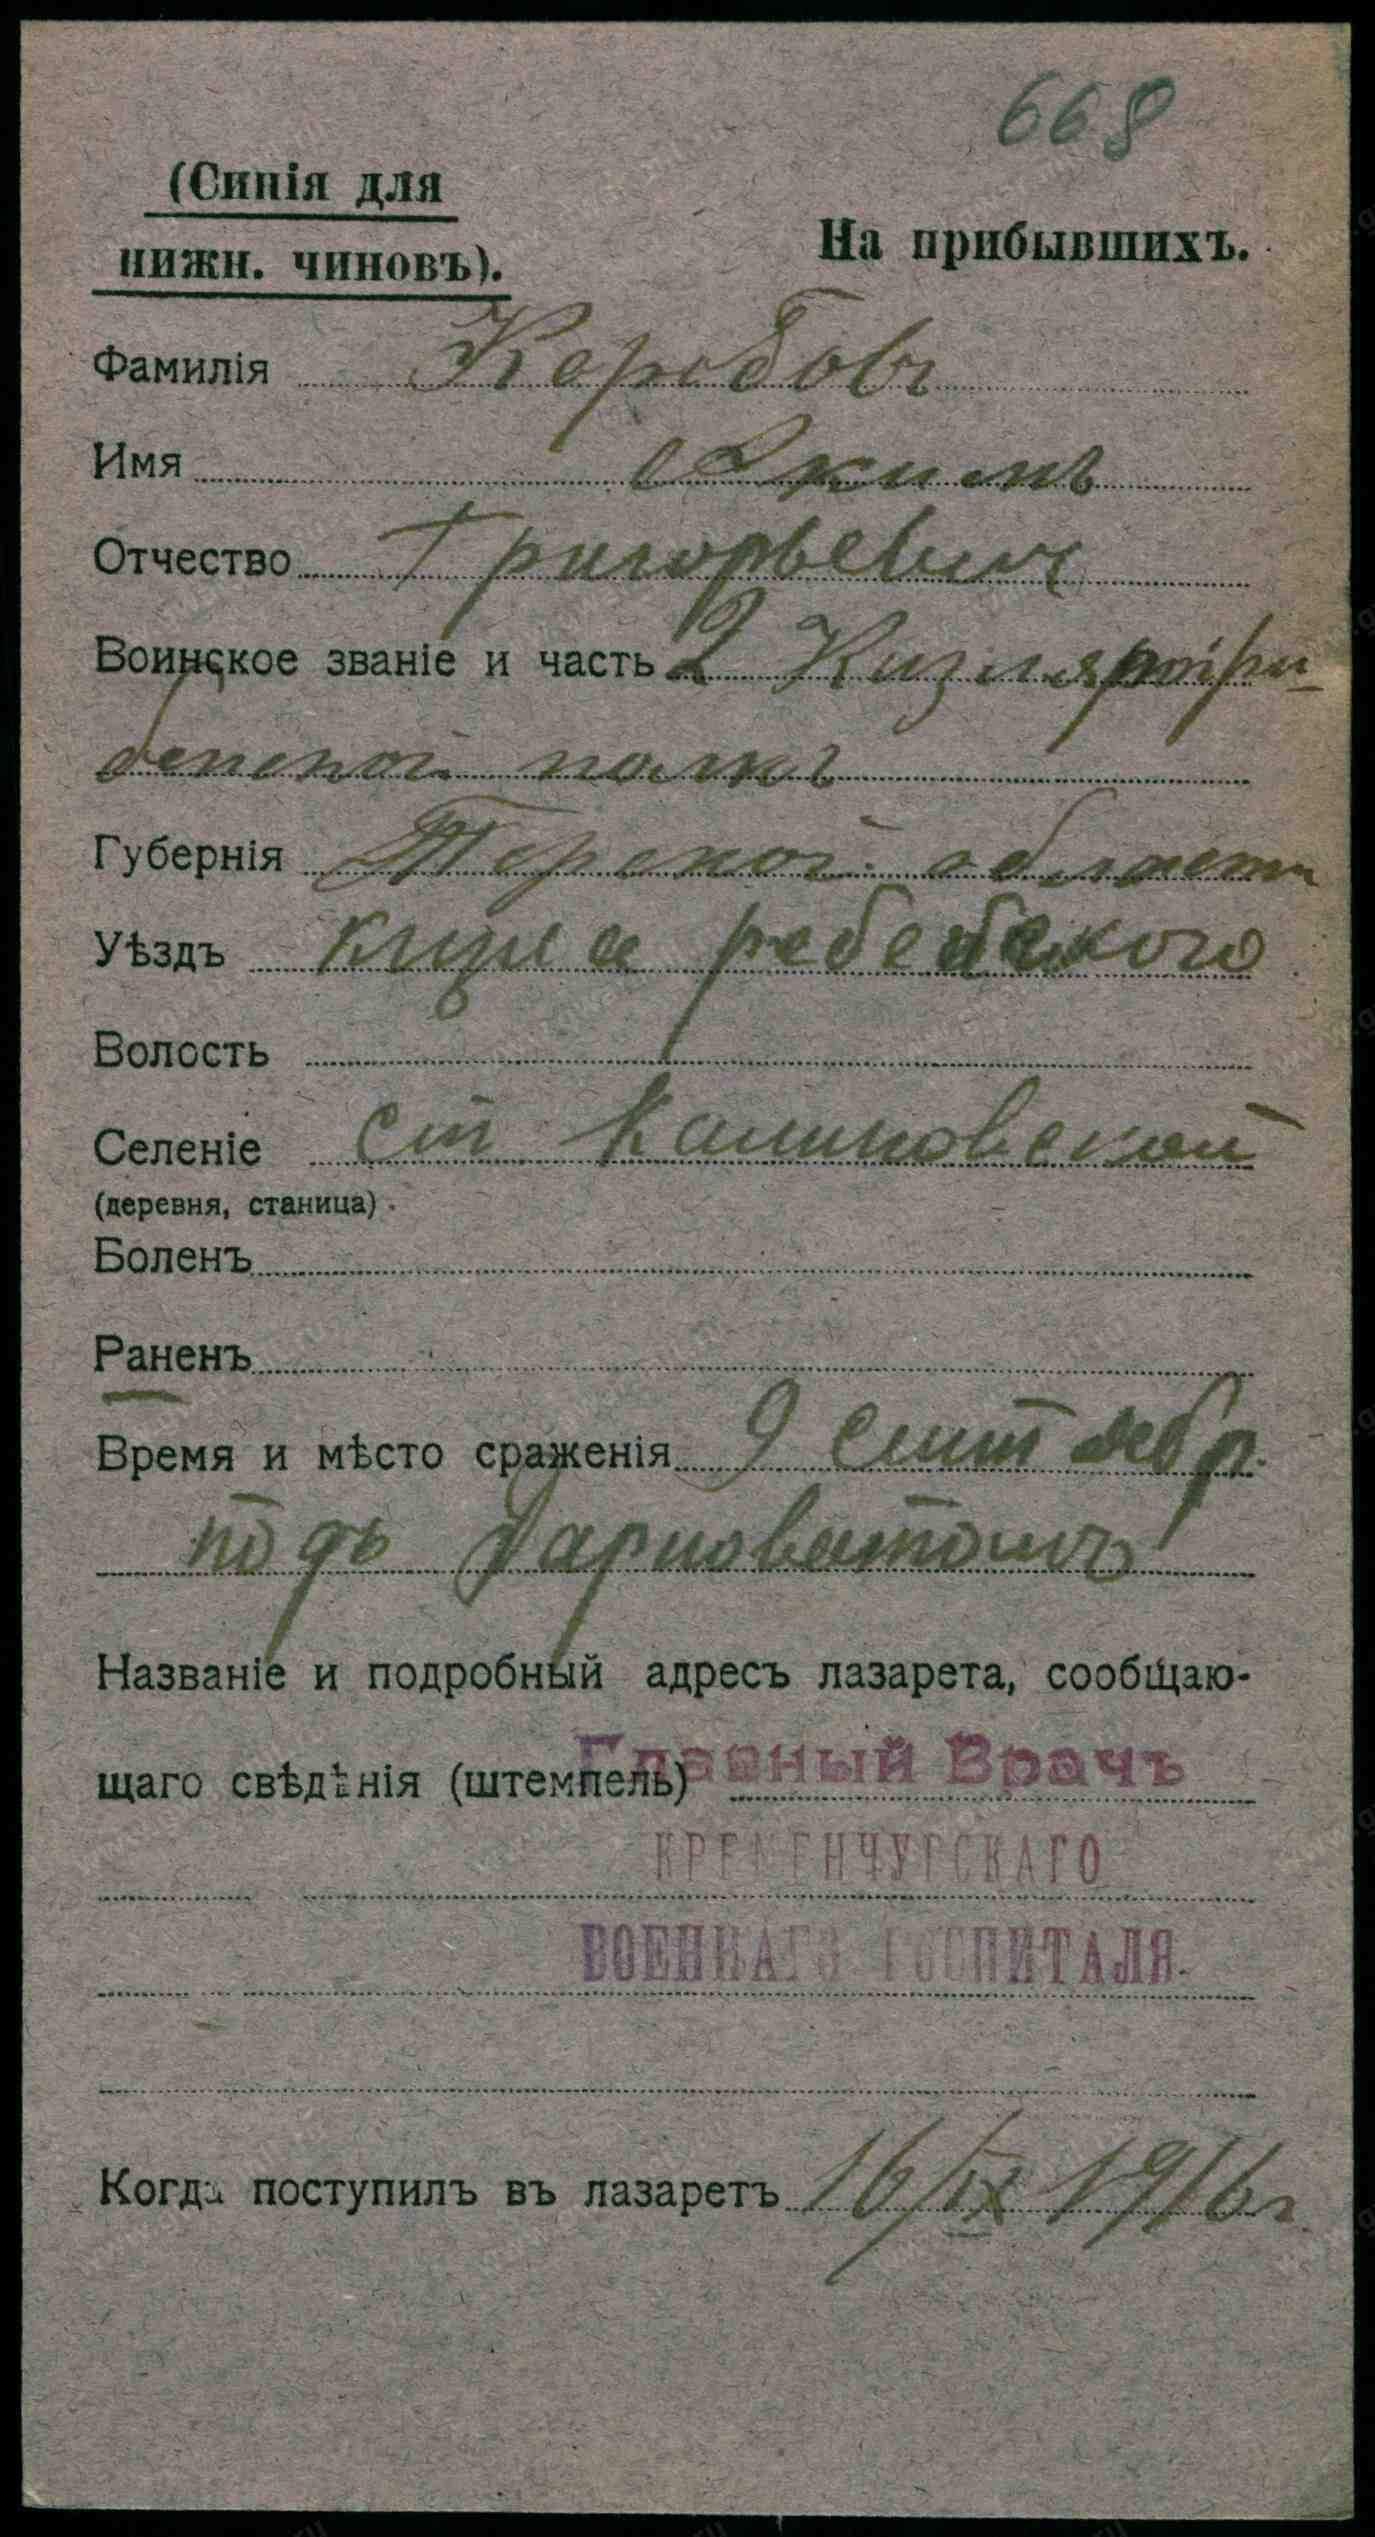 668
(Синія для
нижн. чиновъ).
На прибывшихъ.
Фамилія Коробовъ
Имя Екимъ
Отчество Григорьевич
Воинское званіе и часть 2 Кизляргри-
бенской полкъ
Губернія Терской области
Уѣздъ кизля ребебского
Волость
Селеніе ст Калиновской
(деревня, станица)
Боленъ
Раненъ
Время и мѣсто сраженія 9 Сит
подъ
Названіе и подробный адресъ лазарета, сообщаю-
щаго свѣдѣнія (штемпель) Главный Врачъ
КРЕМЕНЧУГСКАГО
ВОЕННАГО ГОСПИТАЛЯ.
Когда поступилъ въ лазаретъ 16/IX 1916 г.